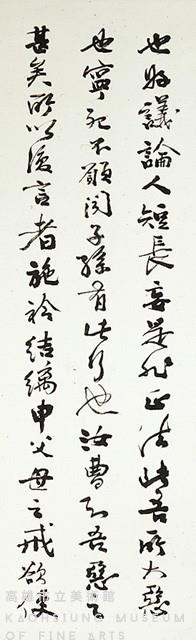 也好議論人短長妄是非正法此吾所大惡
也寧死不願聞子孫有此行也汝曹知吾惡之
甚矣所以復言者施衿結縭申父母之戒欲使
高雄市立美術館
KAOHSIUNG MUSEUM
OF FINE ARTS